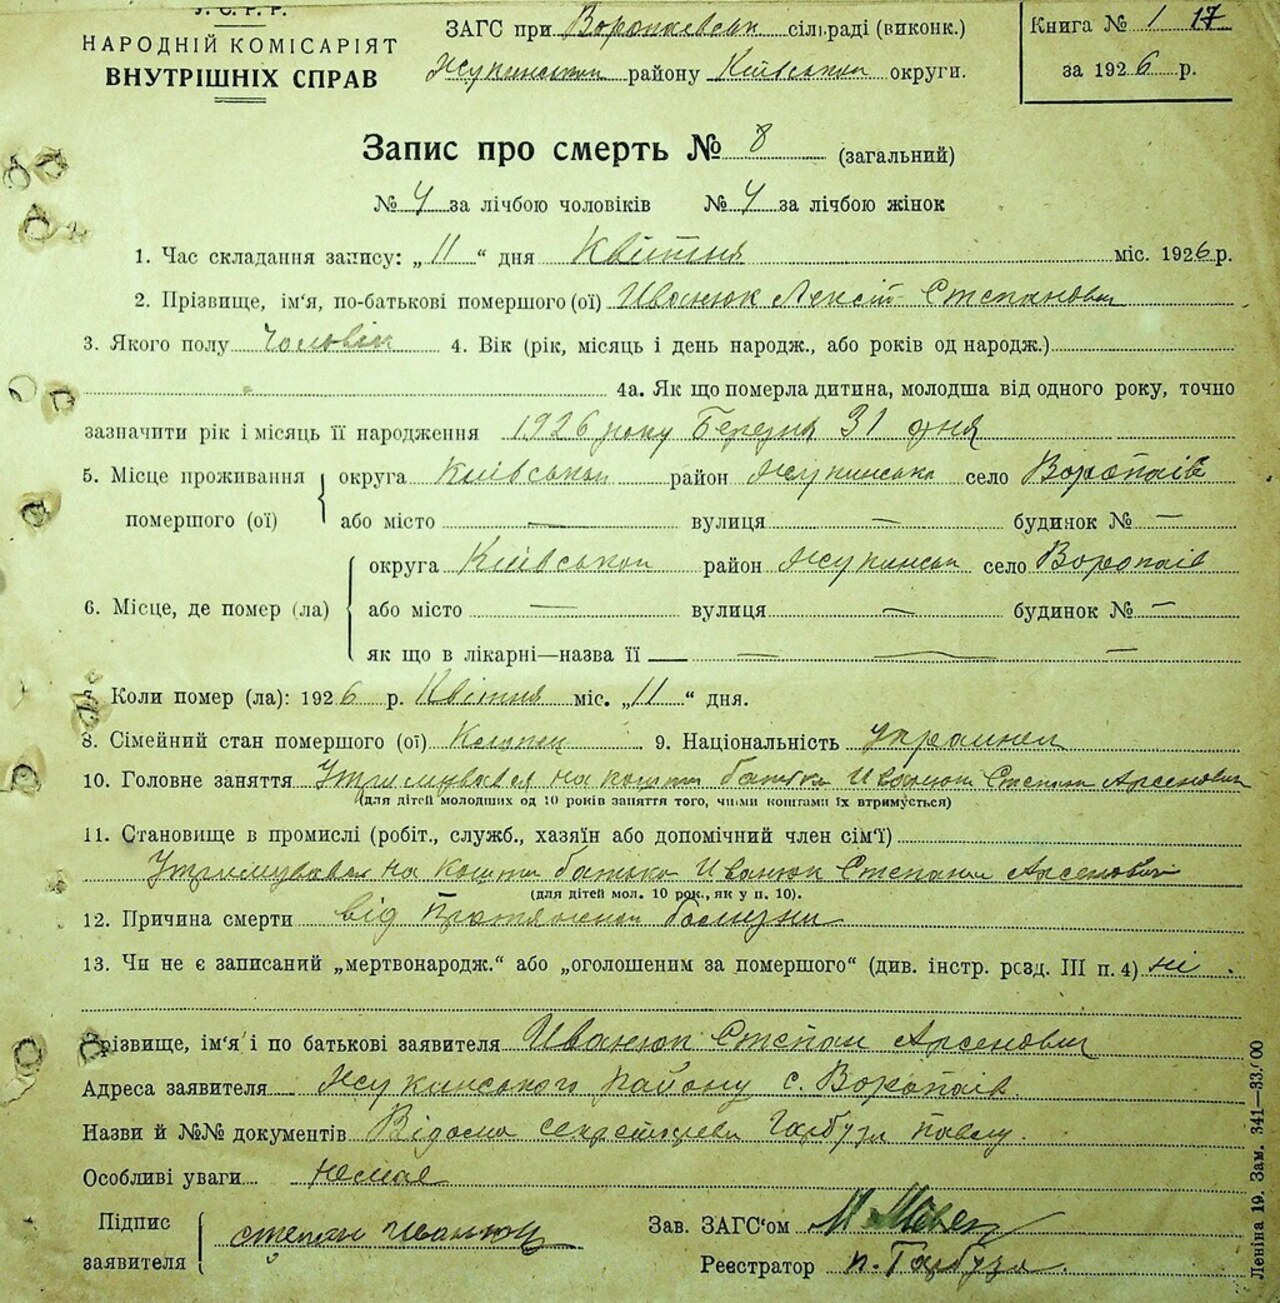 У. С. Р. Р.
НАРОДНІЙ КОМІСАРІЯТ
ВНУТРІШНІХ СПРАВ
ЗАГС при Воропаєвськ сільраді (виконк.)
району Київської округи.
Книга № 1 17
за 1926 р.
Запис про смерть № 8 (загальний)
№ 4 за лічбою чоловіків № 4 за лічбою жінок
1. Час складання запису: „11“ дня Квітня міс. 1926 р.
2. Прізвище, ім‘я, по-батькові помершого (ої) Иванюк Лексій Степанович
3. Якого полу Чоловік 4. Вік (рік, місяць і день народж., або років од народж.)
4а. Як що померла дитина, молодша від одного року, точно
зазначити рік і місяць її народження 1926 року Березня 31 дня
5. Місце проживання округа Київської район село Воропаїв
помершого (ої) або місто — вулиця — будинок № —
округа Київської район село Воропаїв
6. Місце, де помер (ла) або місто — вулиця — будинок № —
як що в лікарні—назва її — — —
7. Коли помер (ла): 1926 р. Квітня міс. „11“ дня.
8. Сімейний стан помершого (ої) 9. Національність Украинец
10. Головне заняття Утримувався на кошти батька Иванюк Степан Арсенович
(для дітей молодших од 10 років заняття того, чиїми коштами їх втримується)
11. Становище в промислі (робіт., служб., хазяїн або допомічний член сім‘ї)
Утримувався на кошти батька Иванюк Степана Арсеновича
(для дітей мол. 10 рок., як у п. 10).
12. Причина смерти від
13. Чи не є записаний „мертвонародж.“ або „оголошеним за помершого“ (див. інстр. розд. III п. 4) ні.
Прізвище, ім‘я і по батькові заявителя Иванюк Степан Арсенович
Адреса заявителя району с. Воропаїв
Назви й №№ документів Відомо секретареві Гарбузу Павлу.
Особливі уваги Немає
Підпис
заявителя Степан Иванюк
Зав. ЗАГС‘ом М
Реєстратор П. Гарбуз
Леніна 19. Зам. 341—33.000